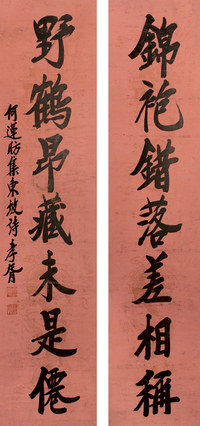 錦袍錯落差相稱
野鶴昂藏未是僊
何蓮舫集東坡詩 孝胥